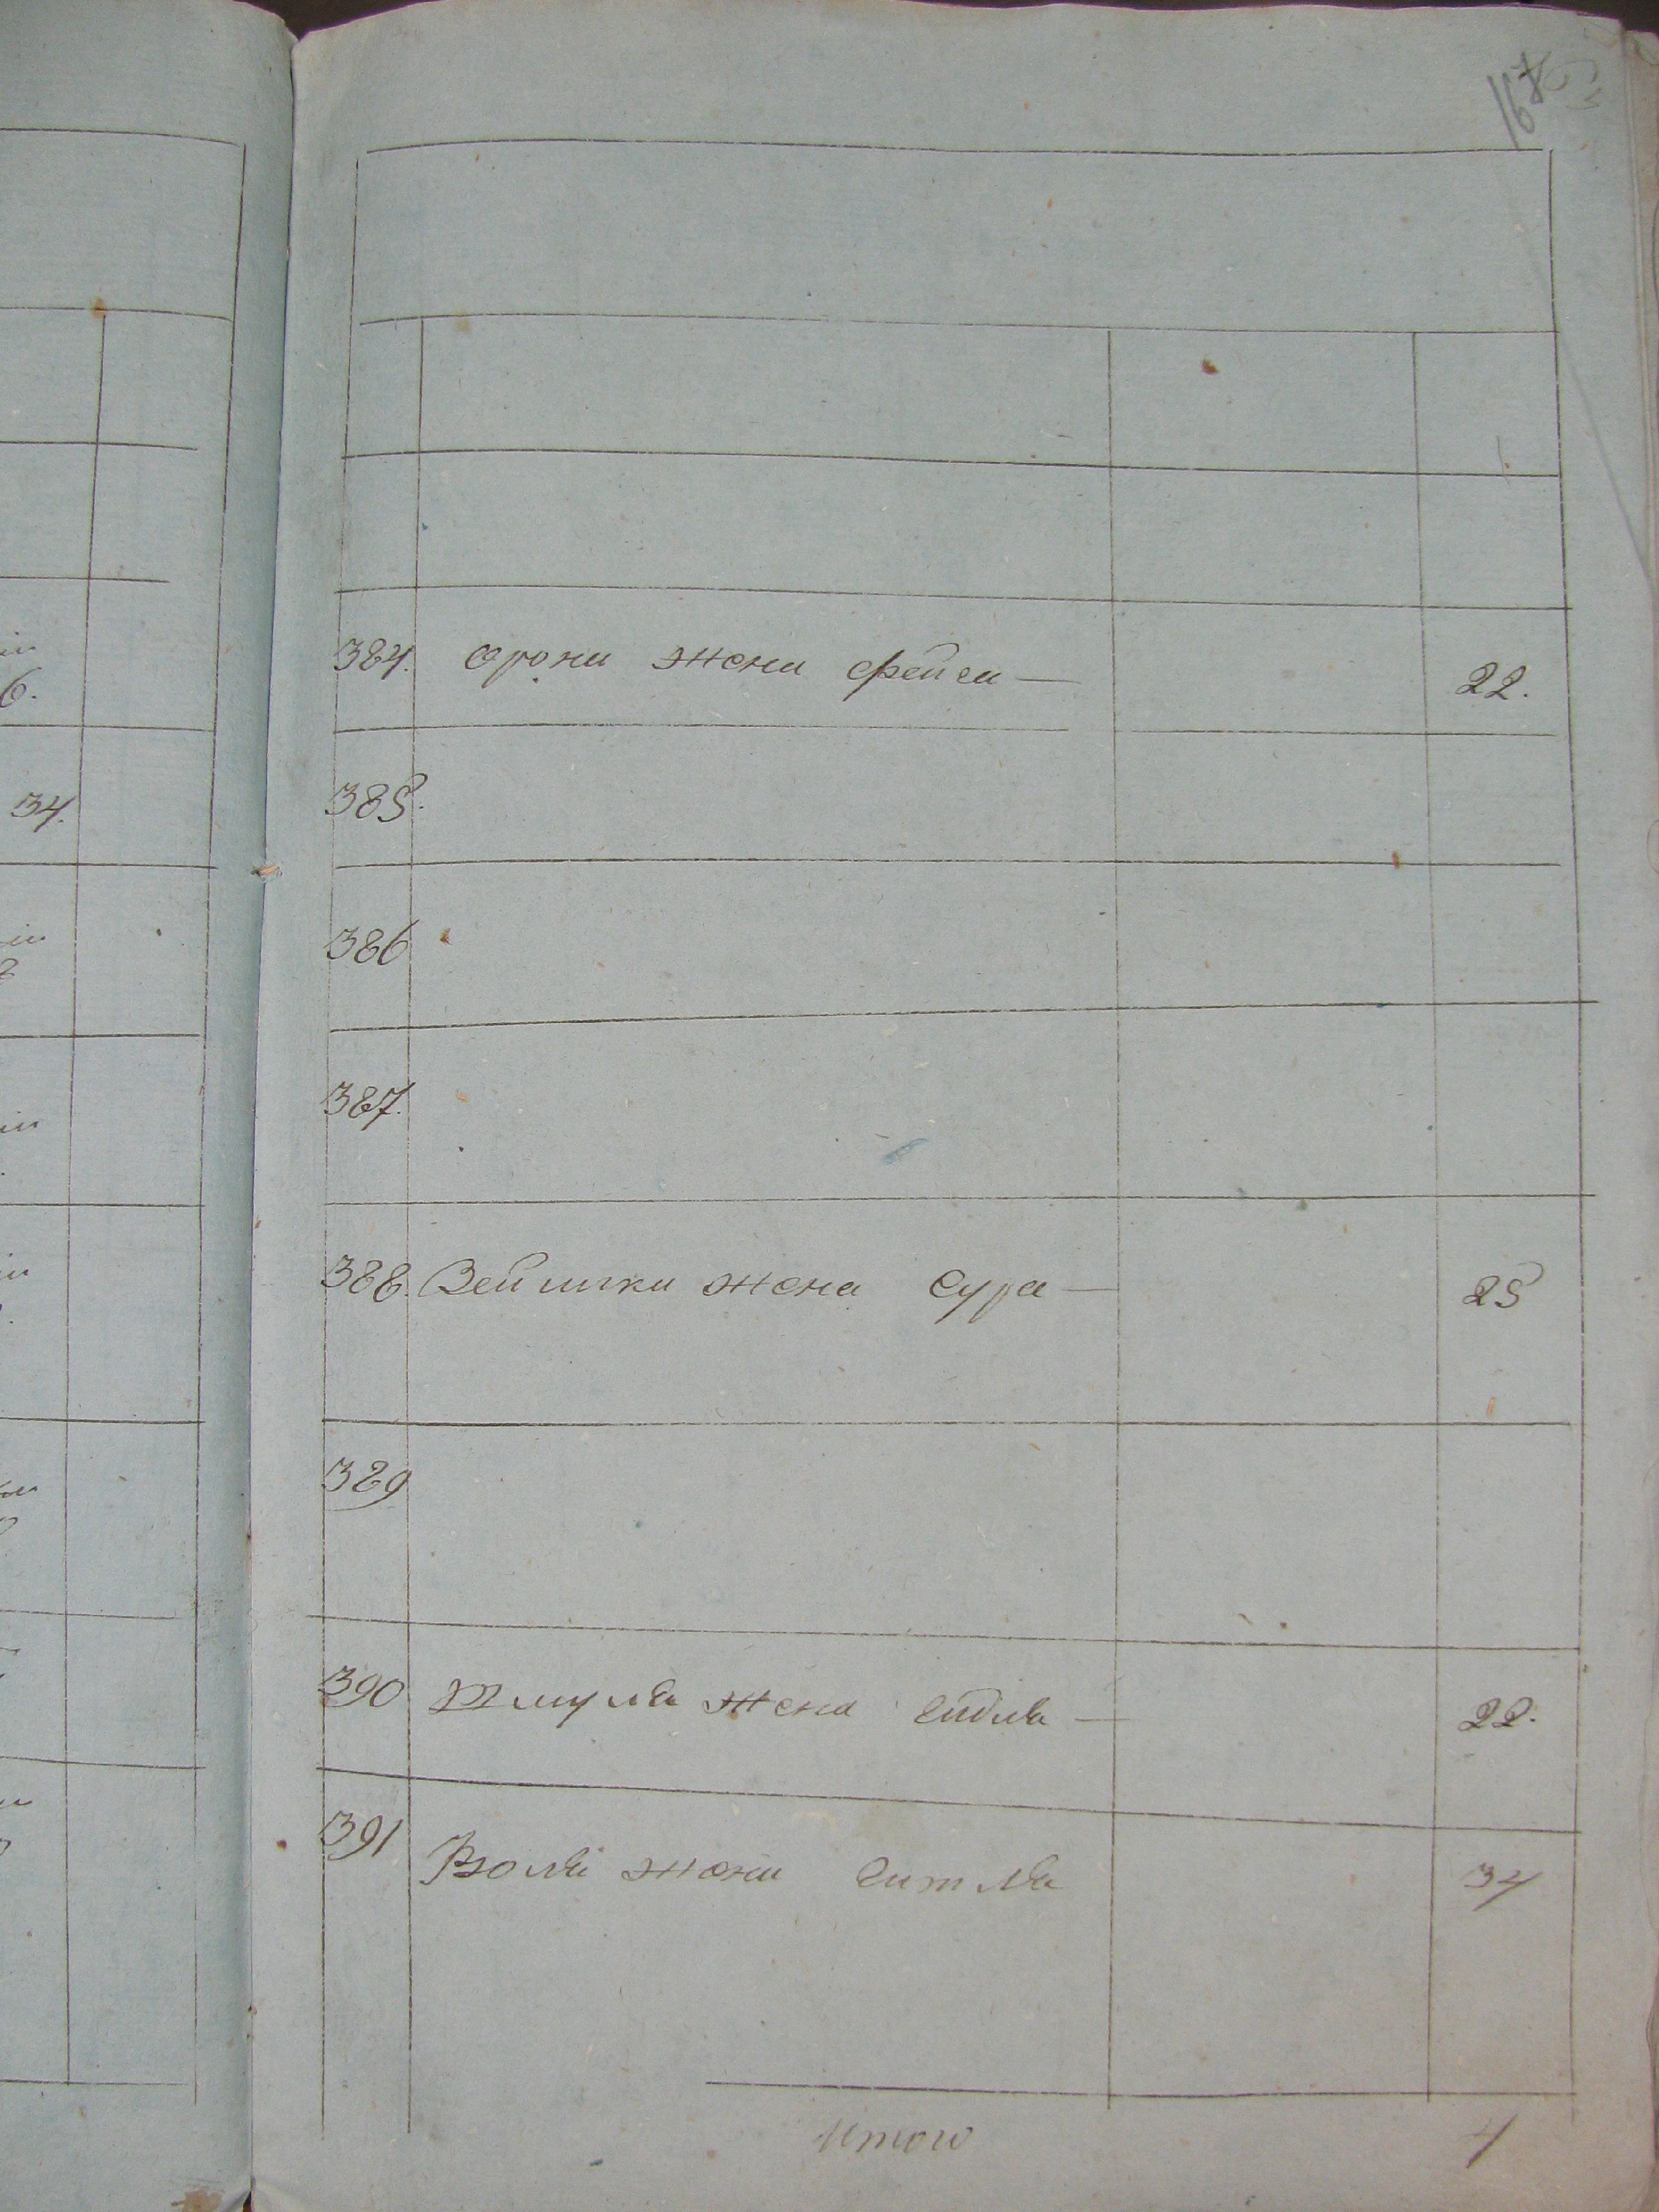 167
6.
34.
384. орона жена фейга — 22.
385.
386
387.
388. Зейлика жена Сура — 25
389
390 Шмуля жена Ейдля — 22.
391 жена 34
Итого 4